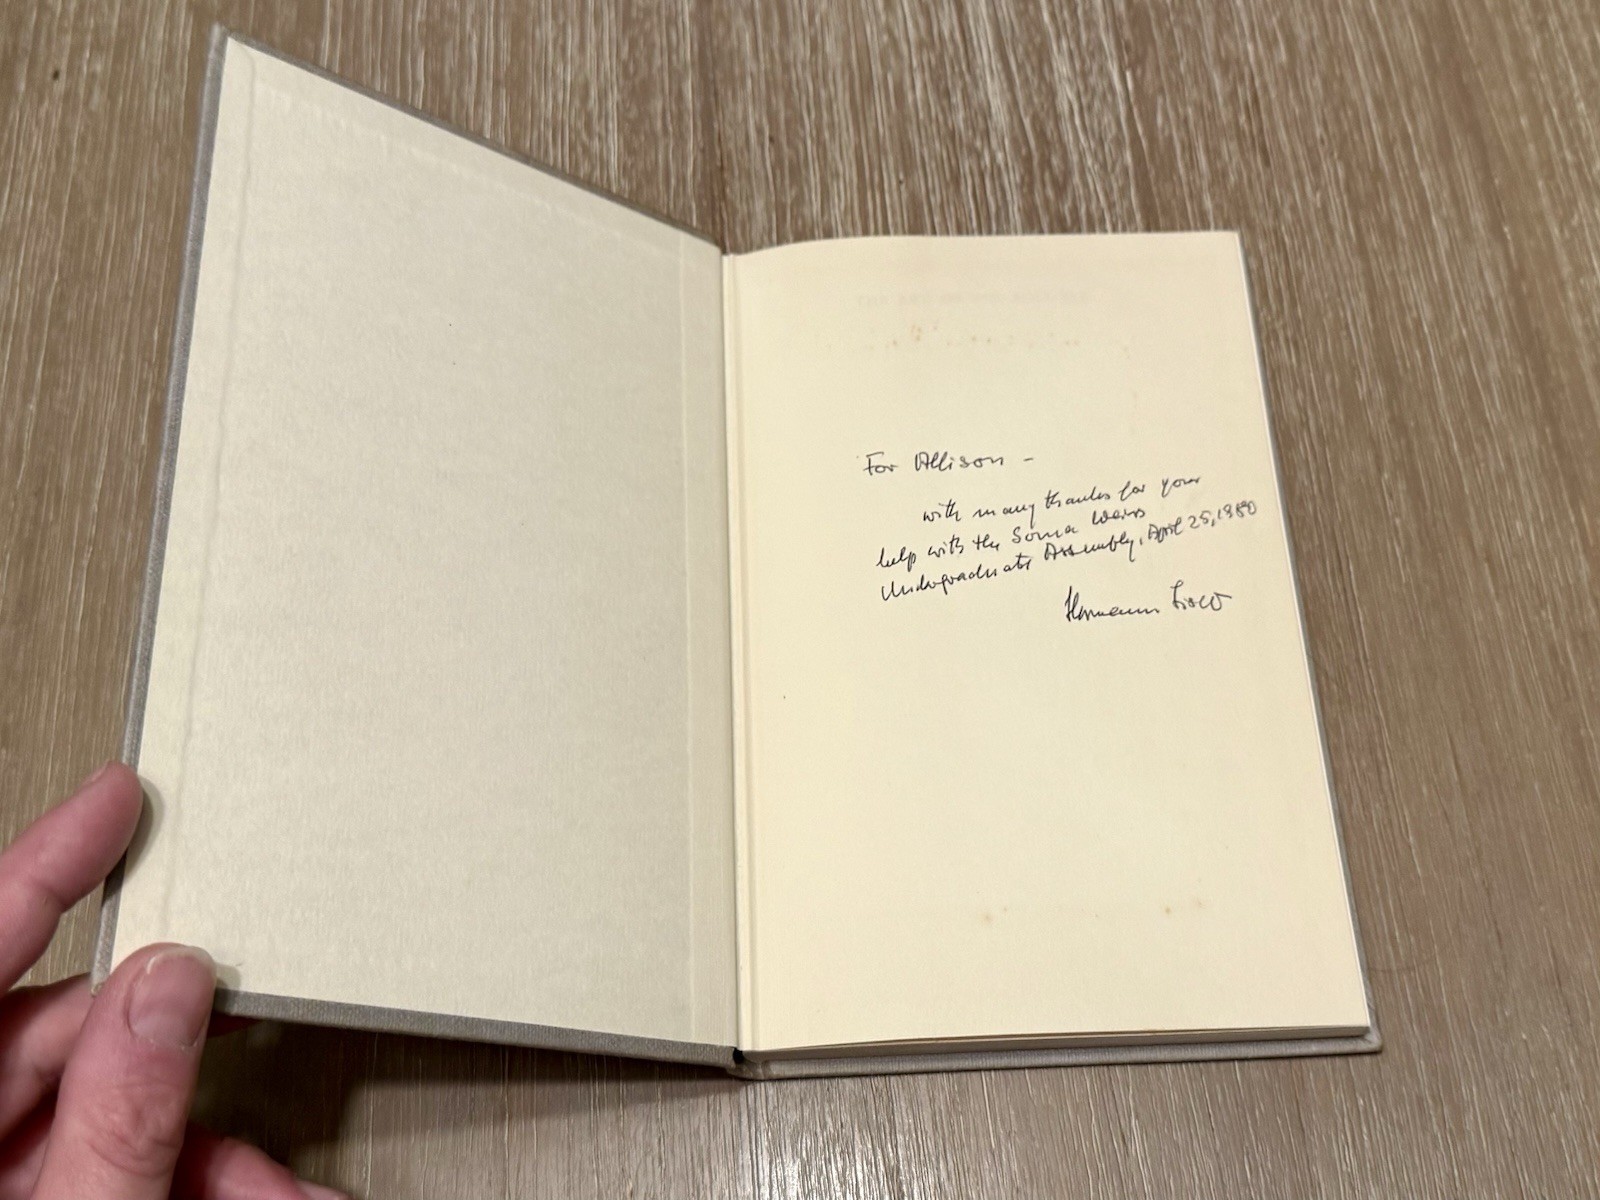 For Allison -
with many thanks for your
help with the Soma Weiss
Undergraduate Assembly, April 25, 1980
Hermann Lisco